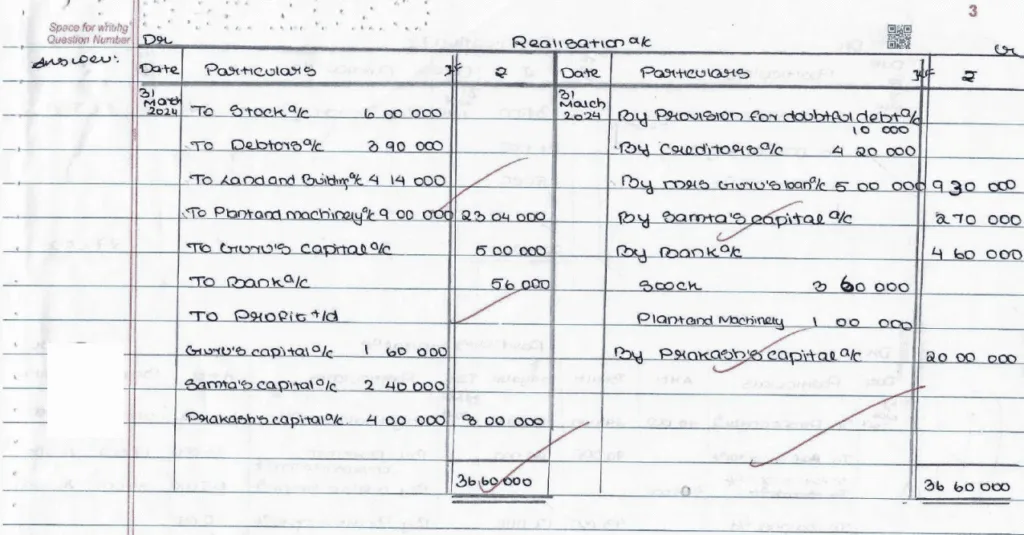 3
Space for writing
Question Number
Answer:
Dr Realisation a/c Cr
Date Particulars JF ₹ Date Particulars JF ₹
31 March 2024 To Stock a/c 6 00 000 31 March 2024 By Provision for doubtful debt a/c
10 000
To Debtors a/c 3 90 000 By Creditors a/c 4 20 000
To Land and Building a/c 4 14 000 By Mrs Guru's loan a/c 5 00 000 9 30 000
To Plant and machinery a/c 9 00 000 23 04 000 By Samta's capital a/c 2 70 000
To Guru's Capital a/c 5 00 000 By Bank a/c 4 60 000
To Bank a/c 56 000 Stock 3 60 000
To Profit t/d Plant and Machinery 1 00 000
Guru's capital a/c 1 60 000 By Prakash's capital a/c 20 00 000
Samta's capital a/c 2 40 000
Prakash's capital a/c 4 00 000 8 00 000
36 60 000 36 60 000